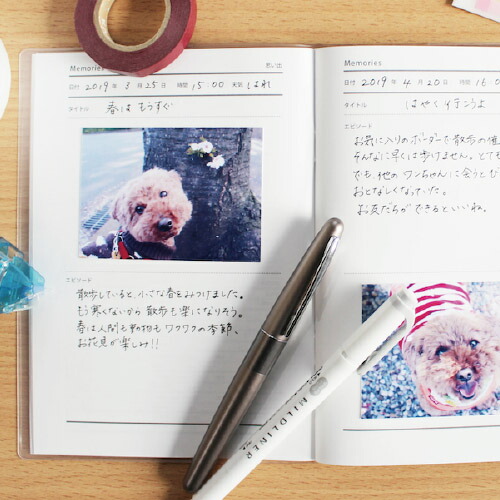 Memories 思い出
日付 2019年 3月 25日 時間 15:00 天気 はれ
タイトル 春はもうすぐ
エピソード
散歩していると、小さな春をみつけました。
もう寒くないから散歩も楽になりそう。
春は人間も動物もワクワクの季節、
お花見が楽しみ!!
Memories
日付 2019年 4月 20日 時間 16:0
タイトル はやく行こうよ
エピソード
お気に入りのボーダーで散歩の催
そんなに早くは歩けません。とても
でも、他のワンちゃんに会うとび
おとなしくなっていた。
お友だちができるといいね。
MILDLINER